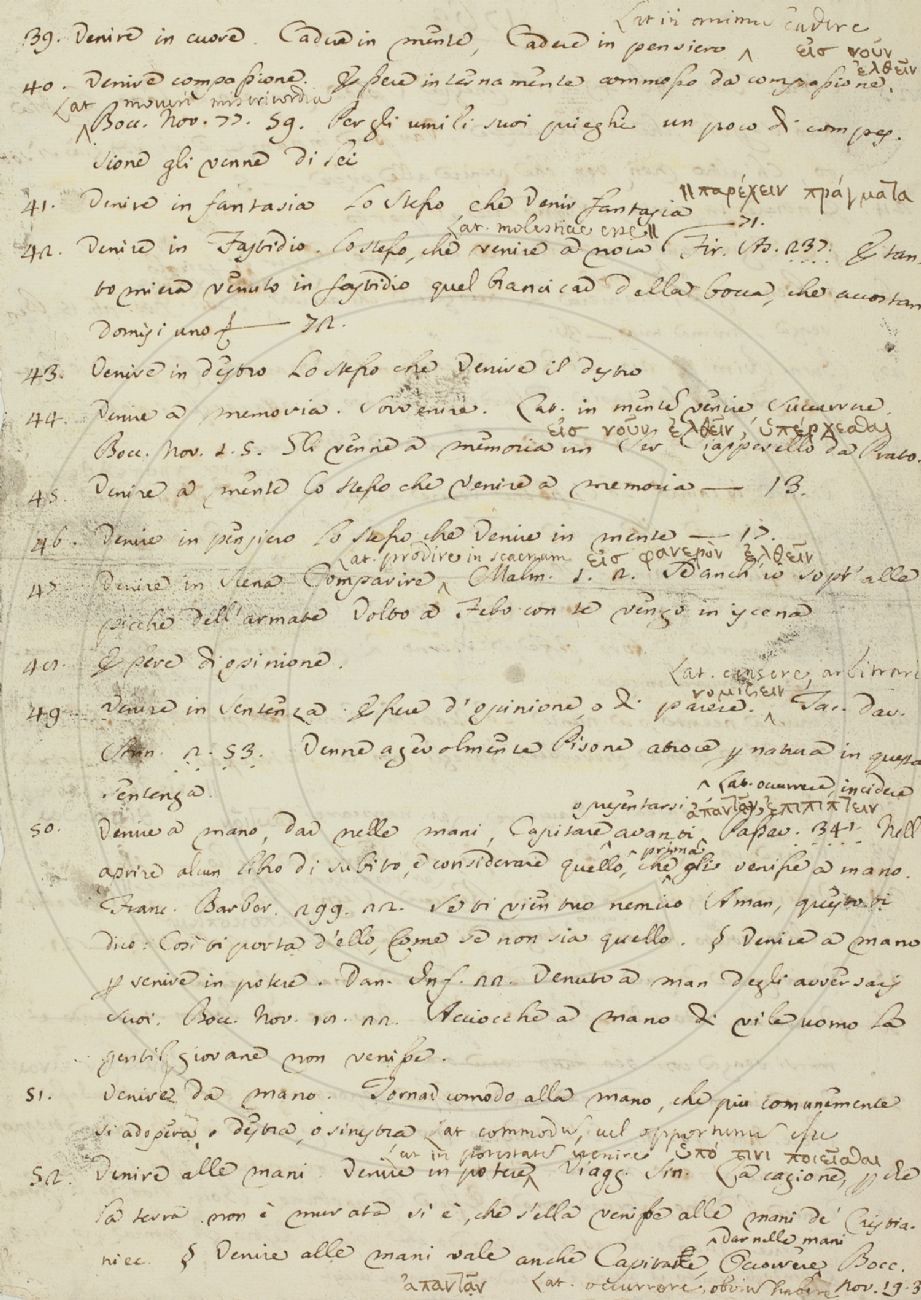 Lat. in animum cadere
39. Venire in cuore. Cadere in mente, Cadere in pensiero ^ εἰσ νοῦν ἐλθεῖν
40. Venire compassione. Essere internamente commosso da compassione.
Lat. moveri misericordia
^ Bocc. Nov. 77. 59. Per gli umili suoi prieghi un poco di compas-
sione gli venne di sei
41. Venire in fantasia Lo stesso, che Venir fantasia || παρέχειν πράγματα
Lat. molestiae esse || — 71.
42. Venire in Fastidio. Lo stesso, che venire a noia Fir. As. 237. E tan-
to mi era venuto in fastidio quel brancicar della bocca, che accostan
domisi uno — 72.
43. Venire in destro Lo stesso che Venire il destro
44. Venire a memoria. Sovvenire. Lat. in mentem venire succurrere.
εἰσ νοῦν ἐλθεῖν, ὑπέρχεσθαι
Bocc. Nov. 1. 5. Gli venne a memoria un Ser Ciappelletto da Prato.
45. Venire a mente Lo stesso che venire a memoria — 13.
46. Venire in pensiero Lo stesso che Venire in mente — 17.
Lat. prodire in scaenam εἰσ φανερὸν ἐλθεῖν
47. Venire in scena Comparire ^ Malm. 1. 2. Ed anch'io sopr' alle
picche dell'armate Volto a Febo con te vengo in iscena
48. Essere di opinione.
Lat. censere, arbitrari
νομίζειν
49. Venire in sentenza. Essere d'opinione, o di parere. ^ Tac. Dav.
Ann. 2. 53. Venne agevolmente Pisone atroce p natura in questa
sentenza.
^ Lat. occurrere, incidere
o presentarsi ἀπαντᾶν, ἐπιπίπτειν
50. Venire a mano, dar nelle mani, Capitare avanti, Passav. 341. Nell
aprire alcun libro di subito, e considerare quello, che prima gli venisse a mano.
Franc. Barber. 299. 22. Se ti vien tuo nemico A man, questo ti
dico: Così ti porta d'ello, Come se non sia quello. § Venire a mano
p venire in potere. Dan. Inf. 22. Venuto a man degli avversarj
suoi. Bocc. Nov. 18. 22. Acciocchè a mano di vile uomo la
gentil giovane non venisse.
51. Venire da mano. Tornar comodo alla mano, che più comunemente
si adopera, o destra, o sinistra Lat commodum, vel opportunum esse
Lat in potestatem venire ὑπό τινι ποιεῖσθαι
52. Venire alle mani Venire in potere ^ Viagg. Sin. La cagione, p che
la terra non è murata si è, che s'ella venisse alle mani de' Cristia-
ni ec. § Venire alle mani vale anche Capitare, ^ Dar nelle mani Occorrere Bocc.
ἀπαντᾶν Lat. occurrere, obvium habere Nov. 19. 3